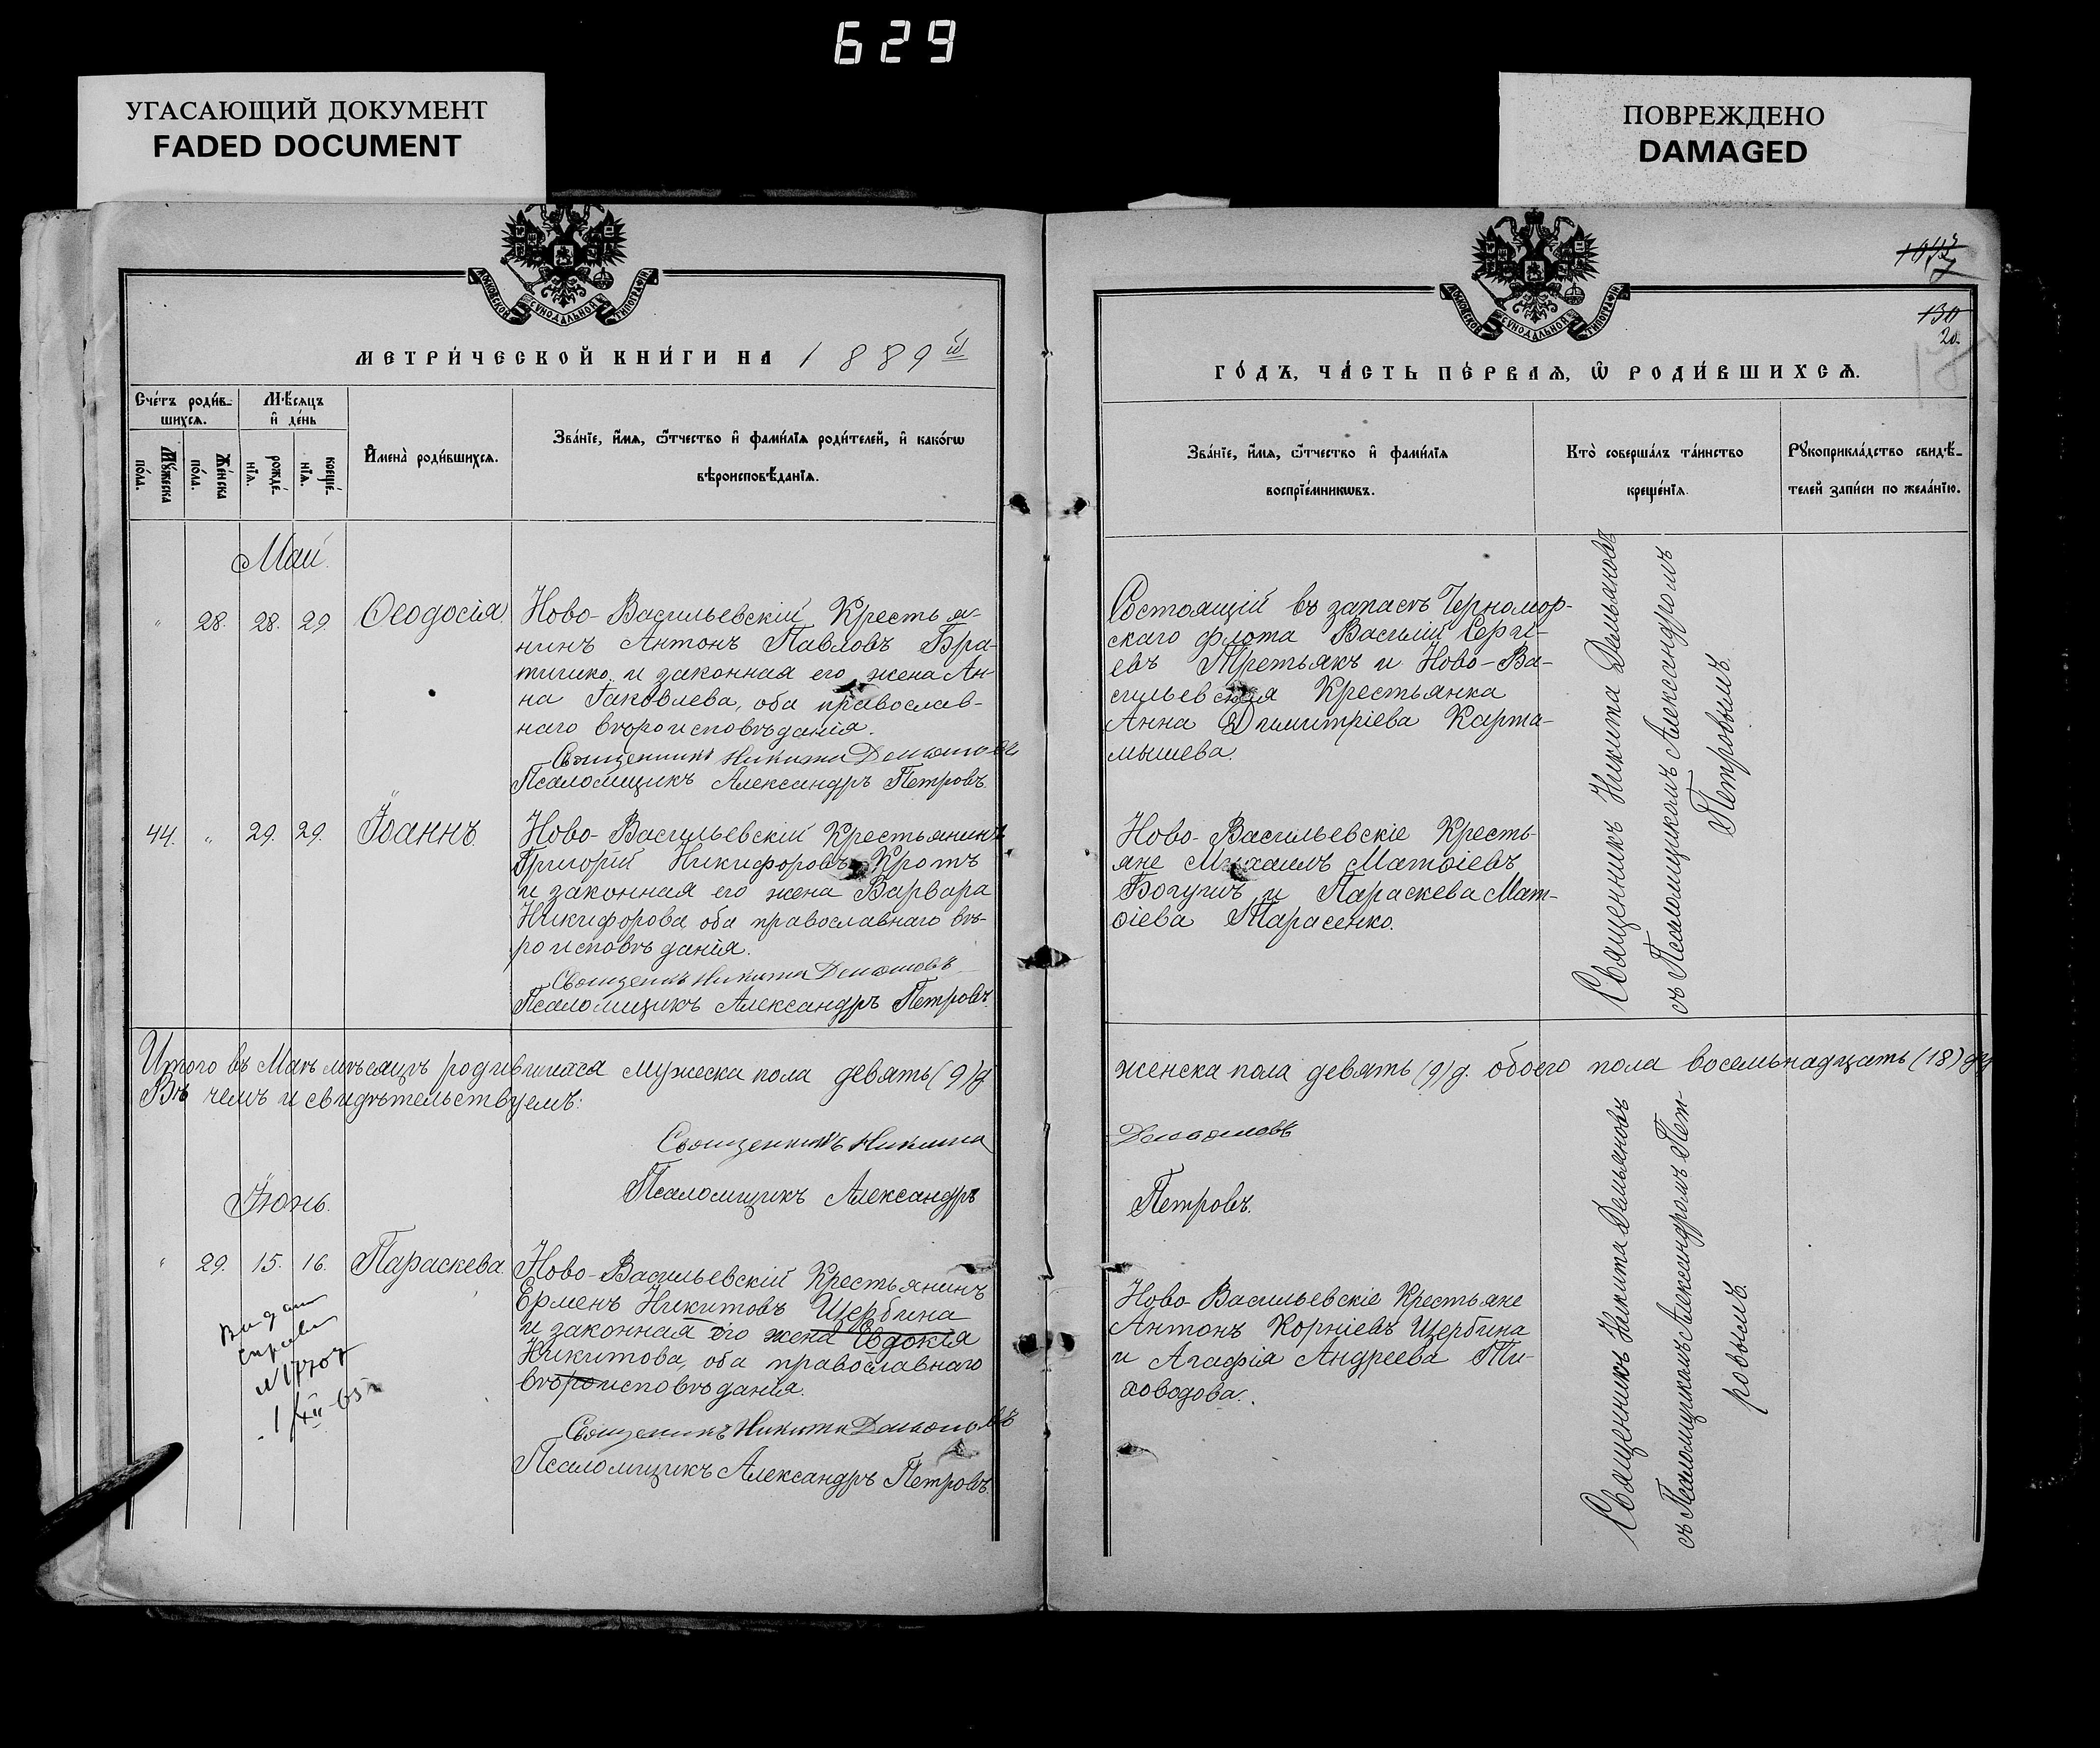 629
УГАСАЮЩИЙ ДОКУМЕНТ
FADED DOCUMENT
ПОВРЕЖДЕНО
DAMAGED
МОСКОВСКОЙ СѴНОДАЛЬНОЙ ТИПОГРАФІИ
МЕТРИ́ЧЕСКОЙ КНИ́ГИ НА 1889 й
Сче́тъ роди́в-
шихсѧ.
Мѣ́сяцъ
и҆ де́нь
Мꙋ́жеска
по́ла.
Же́нска
по́ла.
рожде́-
нїѧ.
креще́-
нїѧ.
И҆мена̀ роди́вшихсѧ.
Зва́нїе, и҆́мѧ, ѻ҆́тчество и҆ фами́лїѧ роди́телей, и҆ како́гѡ
вѣроисповѣ́данїѧ.
Май.
" 28. 28. 29. Ѳеодосія.
Ново-Васильевскій Крестья-
нинъ Антонъ Павловъ Бра-
тишко и законная его жена Ан-
на Іаковлева, оба православ-
наго вѣроисповѣданія.
Священникъ Никита Демьяновъ
Псаломщикъ Александръ Петровъ.
44. " 29. 29. Іоаннъ.
Ново-Васильевскій Крестьянинъ
Григорій Никифоровъ Кротъ
и законная его жена Варвара
Никифорова оба православнаго вѣ-
роисповѣданія.
Священникъ Никита Демьяновъ
Псаломщикъ Александръ Петровъ.
Итого въ Маѣ мѣсяцѣ родившихся мужеска пола девять (9) д.
Въ чемъ и свидѣтельствуемъ:
Священникъ Никита
Псаломщикъ Александръ
Іюнь.
" 29. 15. 16. Параскева.
Ново-Васильевскій Крестьянинъ
Ерменъ Никитовъ Щербина
и законная его жена Евдокія
Никитова, оба православнаго
вѣроисповѣданія.
Священникъ Никита Демьяновъ
Псаломщикъ Александръ Петровъ.
МОСКОВСКОЙ СѴНОДАЛЬНОЙ ТИПОГРАФІИ
130
20.
ГО́ДЪ, ЧА́СТЬ ПЕ́РВАѦ, Ѡ҆ РОДИ́ВШИХСѦ.
Зва́нїе, и҆́мѧ, ѻ҆́тчество и҆ фами́лїѧ
воспрїе́мникѡвъ.
Кто̀ соверша́лъ та́инство
креще́нїѧ.
Рꙋкоприкла́дство свидѣ́-
телей за́писи по жела́нїю.
Состоящій въ запасѣ Черномор-
скаго флота Василій Сергі-
евъ Третьякъ и Ново-Ва-
сильевская Крестьянка
Анна Димитріева Карта-
мышева.
Священникъ Никита Демьяновъ
съ Псаломщикомъ Александромъ
Петровымъ.
Ново-Васильевскіе Кресть-
яне Михаилъ Матѳіевъ
Богушъ и Параскева Мат-
ѳіева Тарасенко.
женска пола девять (9) д. обоего пола восемьнадцать (18) д.
Демьяновъ
Петровъ.
Ново-Васильевскіе Крестьяне
Антонъ Корніевъ Щербина
и Агафія Андреева Ти-
ховодова.
Священникъ Никита Демьяновъ
съ Псаломщикомъ Александромъ Пет-
ровымъ.